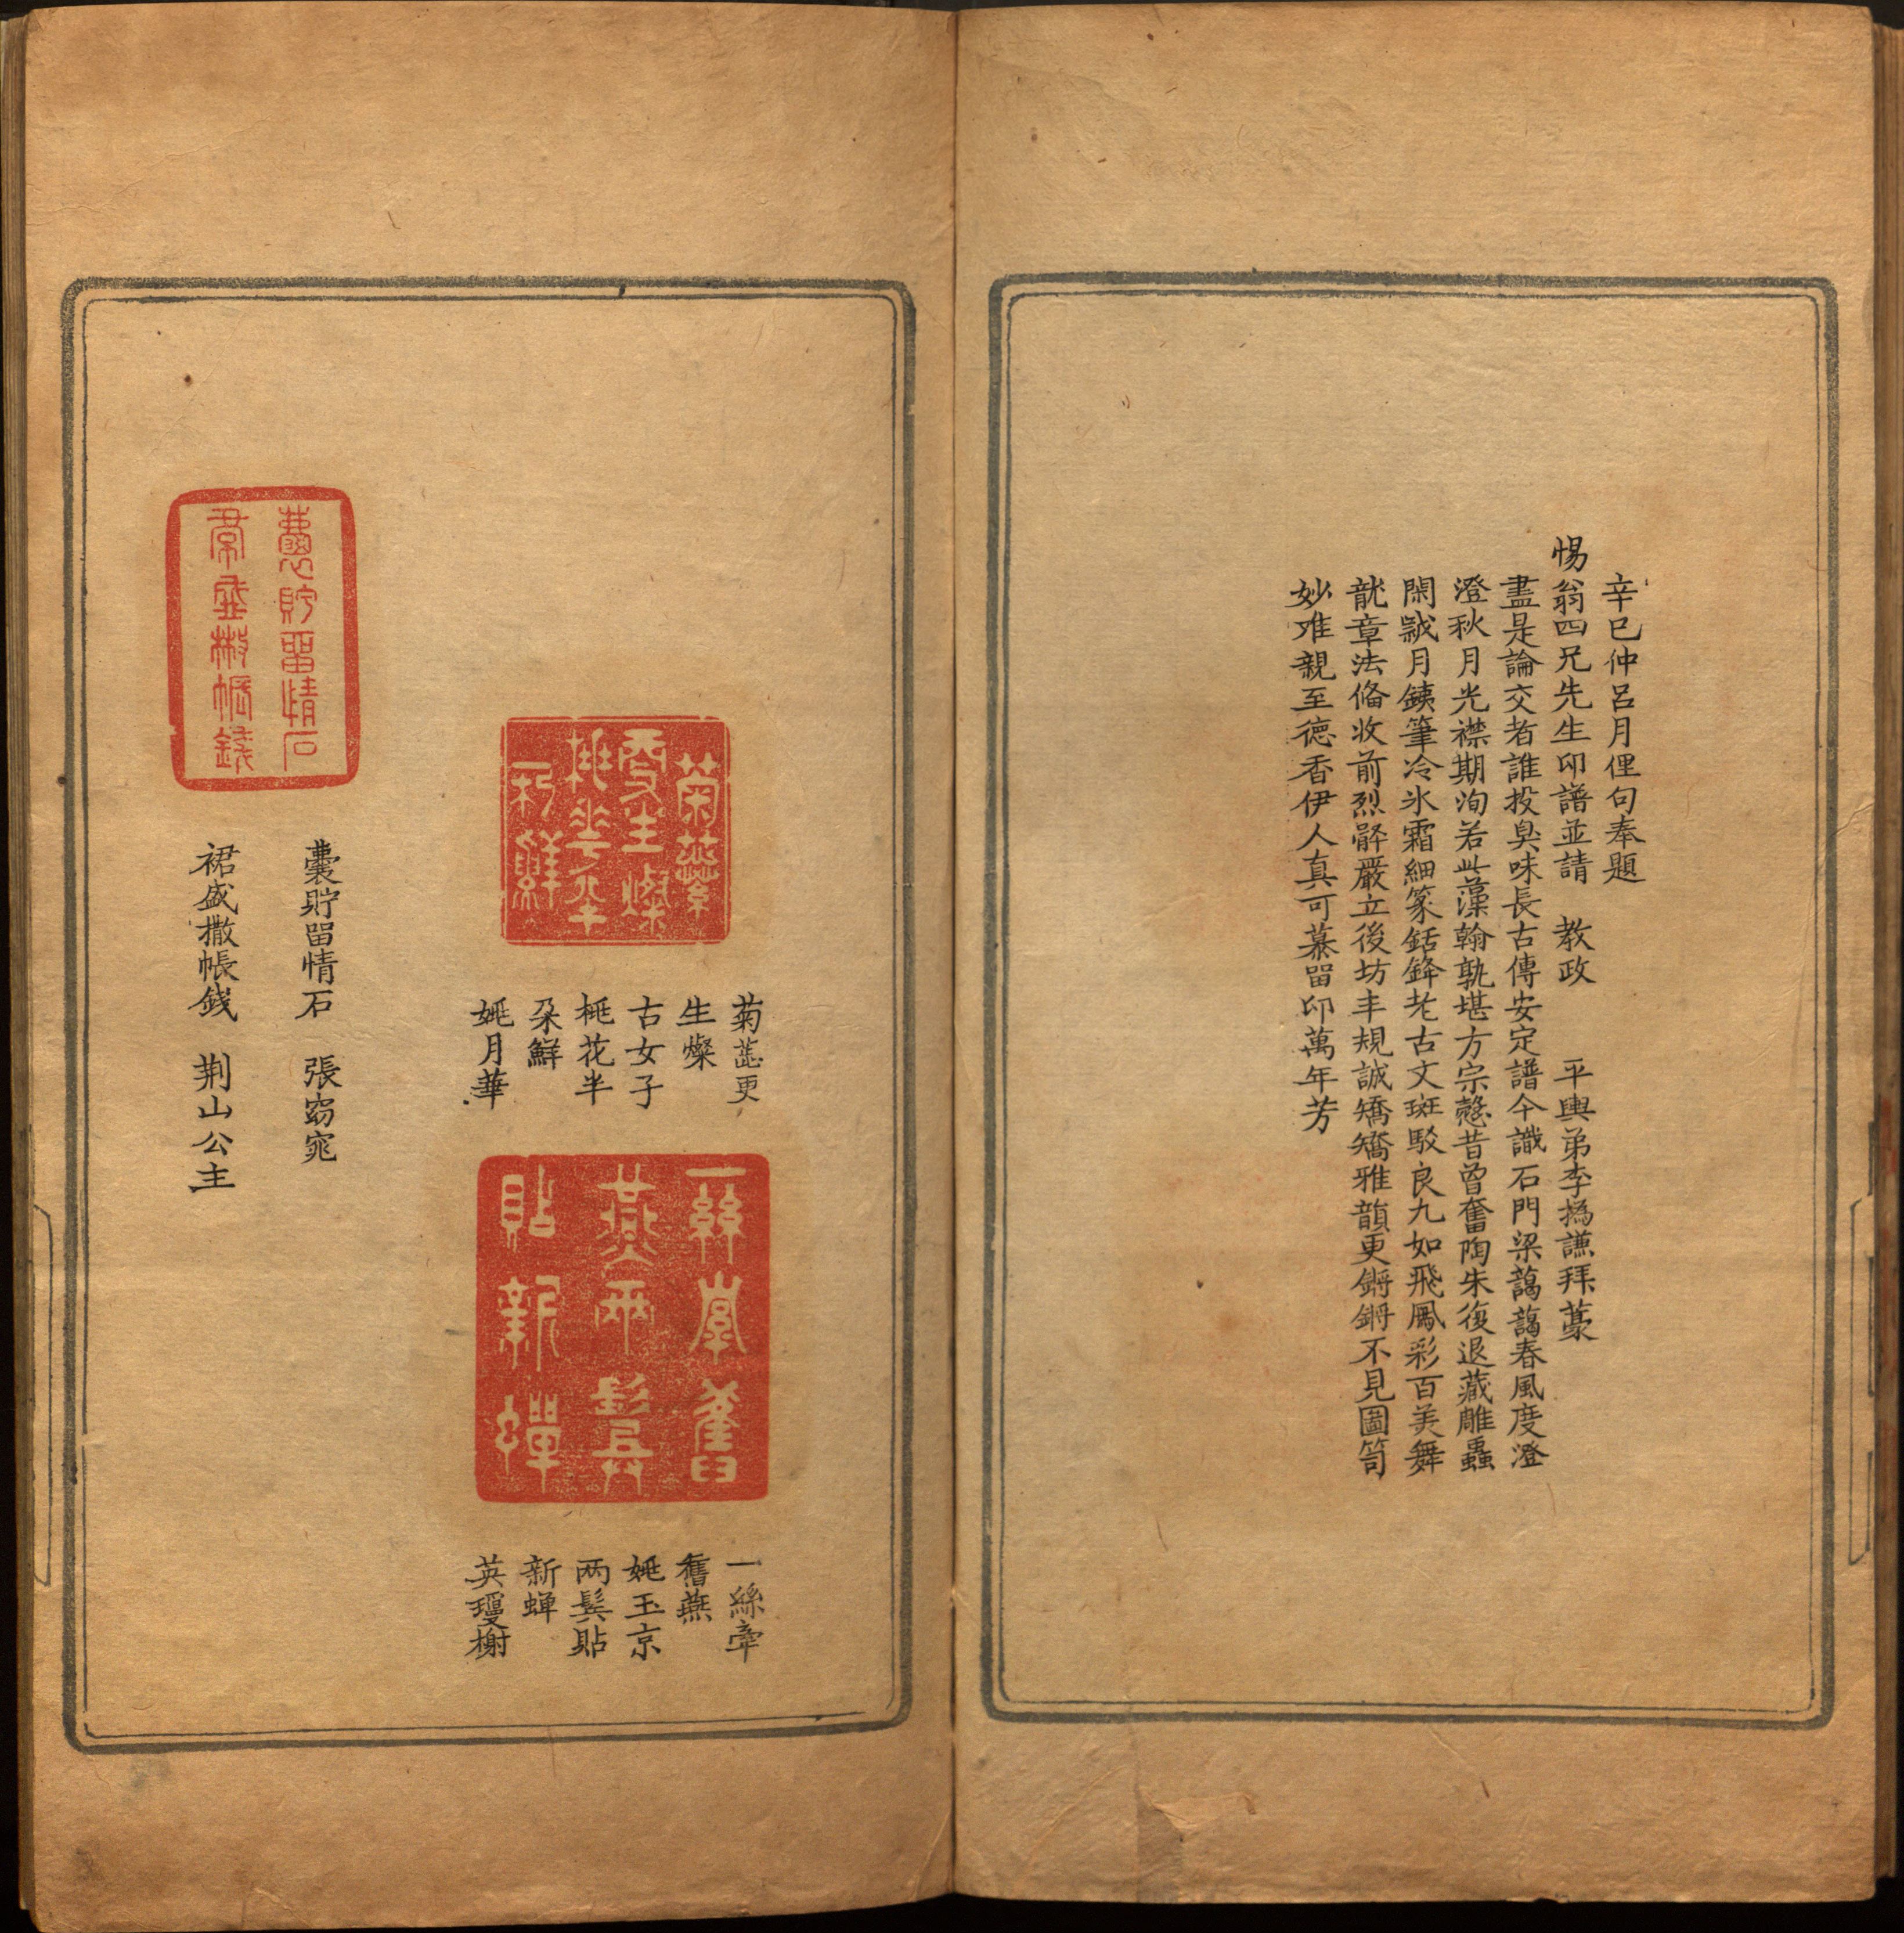 辛巳仲呂月俚句奉題
惕翁四兄先生印譜並請　教政　　平輿弟李撝謙拜藁
盡是論交者誰投臭味長古傳安定譜今識石門梁藹藹春風度澄
澄秋月光襟期洵若此藻翰孰堪方宗愨昔曾奮陶朱復退藏雕蟲
閑歲月銕筆冷氷霜細篆銛鋒老古文斑駁良九如飛鳳彩百美舞
龍章法俻收前烈辭嚴立後坊丰規誠矯矯雅韻更鏘鏘不見圖笥
妙难親至德香伊人真可慕留印萬年芳
菊蕊更
生燦
古女子
桃花半
朶鮮
姚月華
一絲牽
舊燕
姚玉京
两鬓貼
新蝉
英瓊樹
囊貯留情石　張窈窕
裙盛撒帳錢　荆山公主
菊蕊
更生燦
桃花半
朶鮮
一絲牽舊
燕兩鬢
貼新蟬
囊貯留情石
帬盛撒帳錢